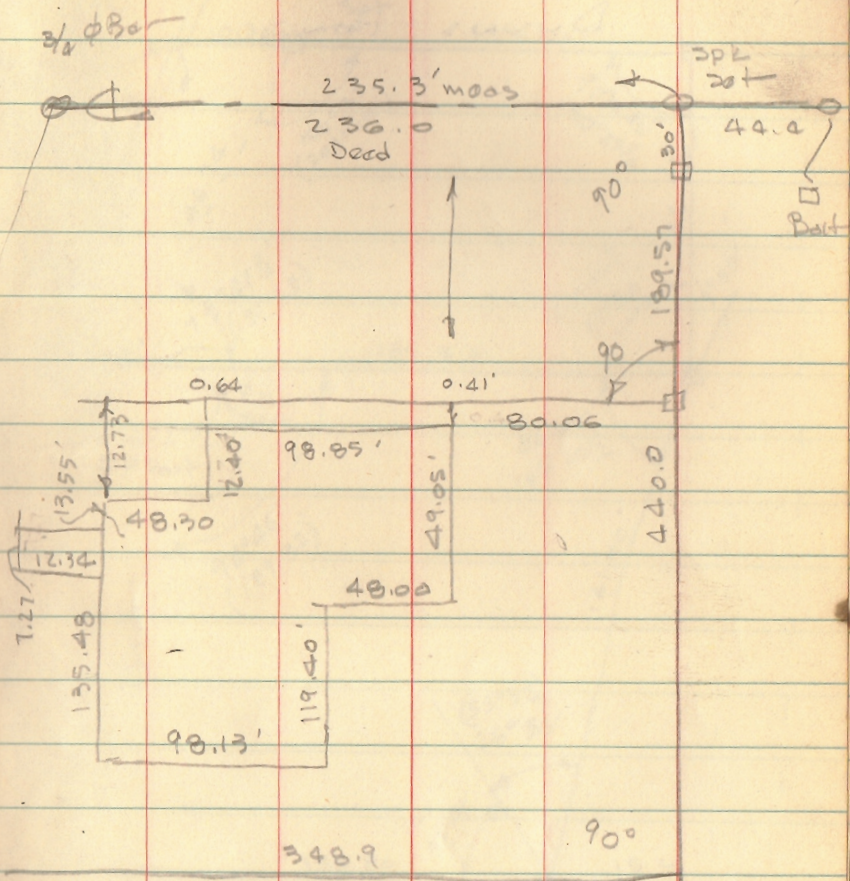 3/4 φ Bar
235.3' meas
236.0
Deed
Spk
Set
44.4
30'
90°
Bolt
189.57
90
0.64
0.41'
80.06
12.73
12.40'
98.85'
13.55'
48.30
49.05'
440.0
12.34
7.27
48.00
135.48
119.40'
98.13'
90°
348.9